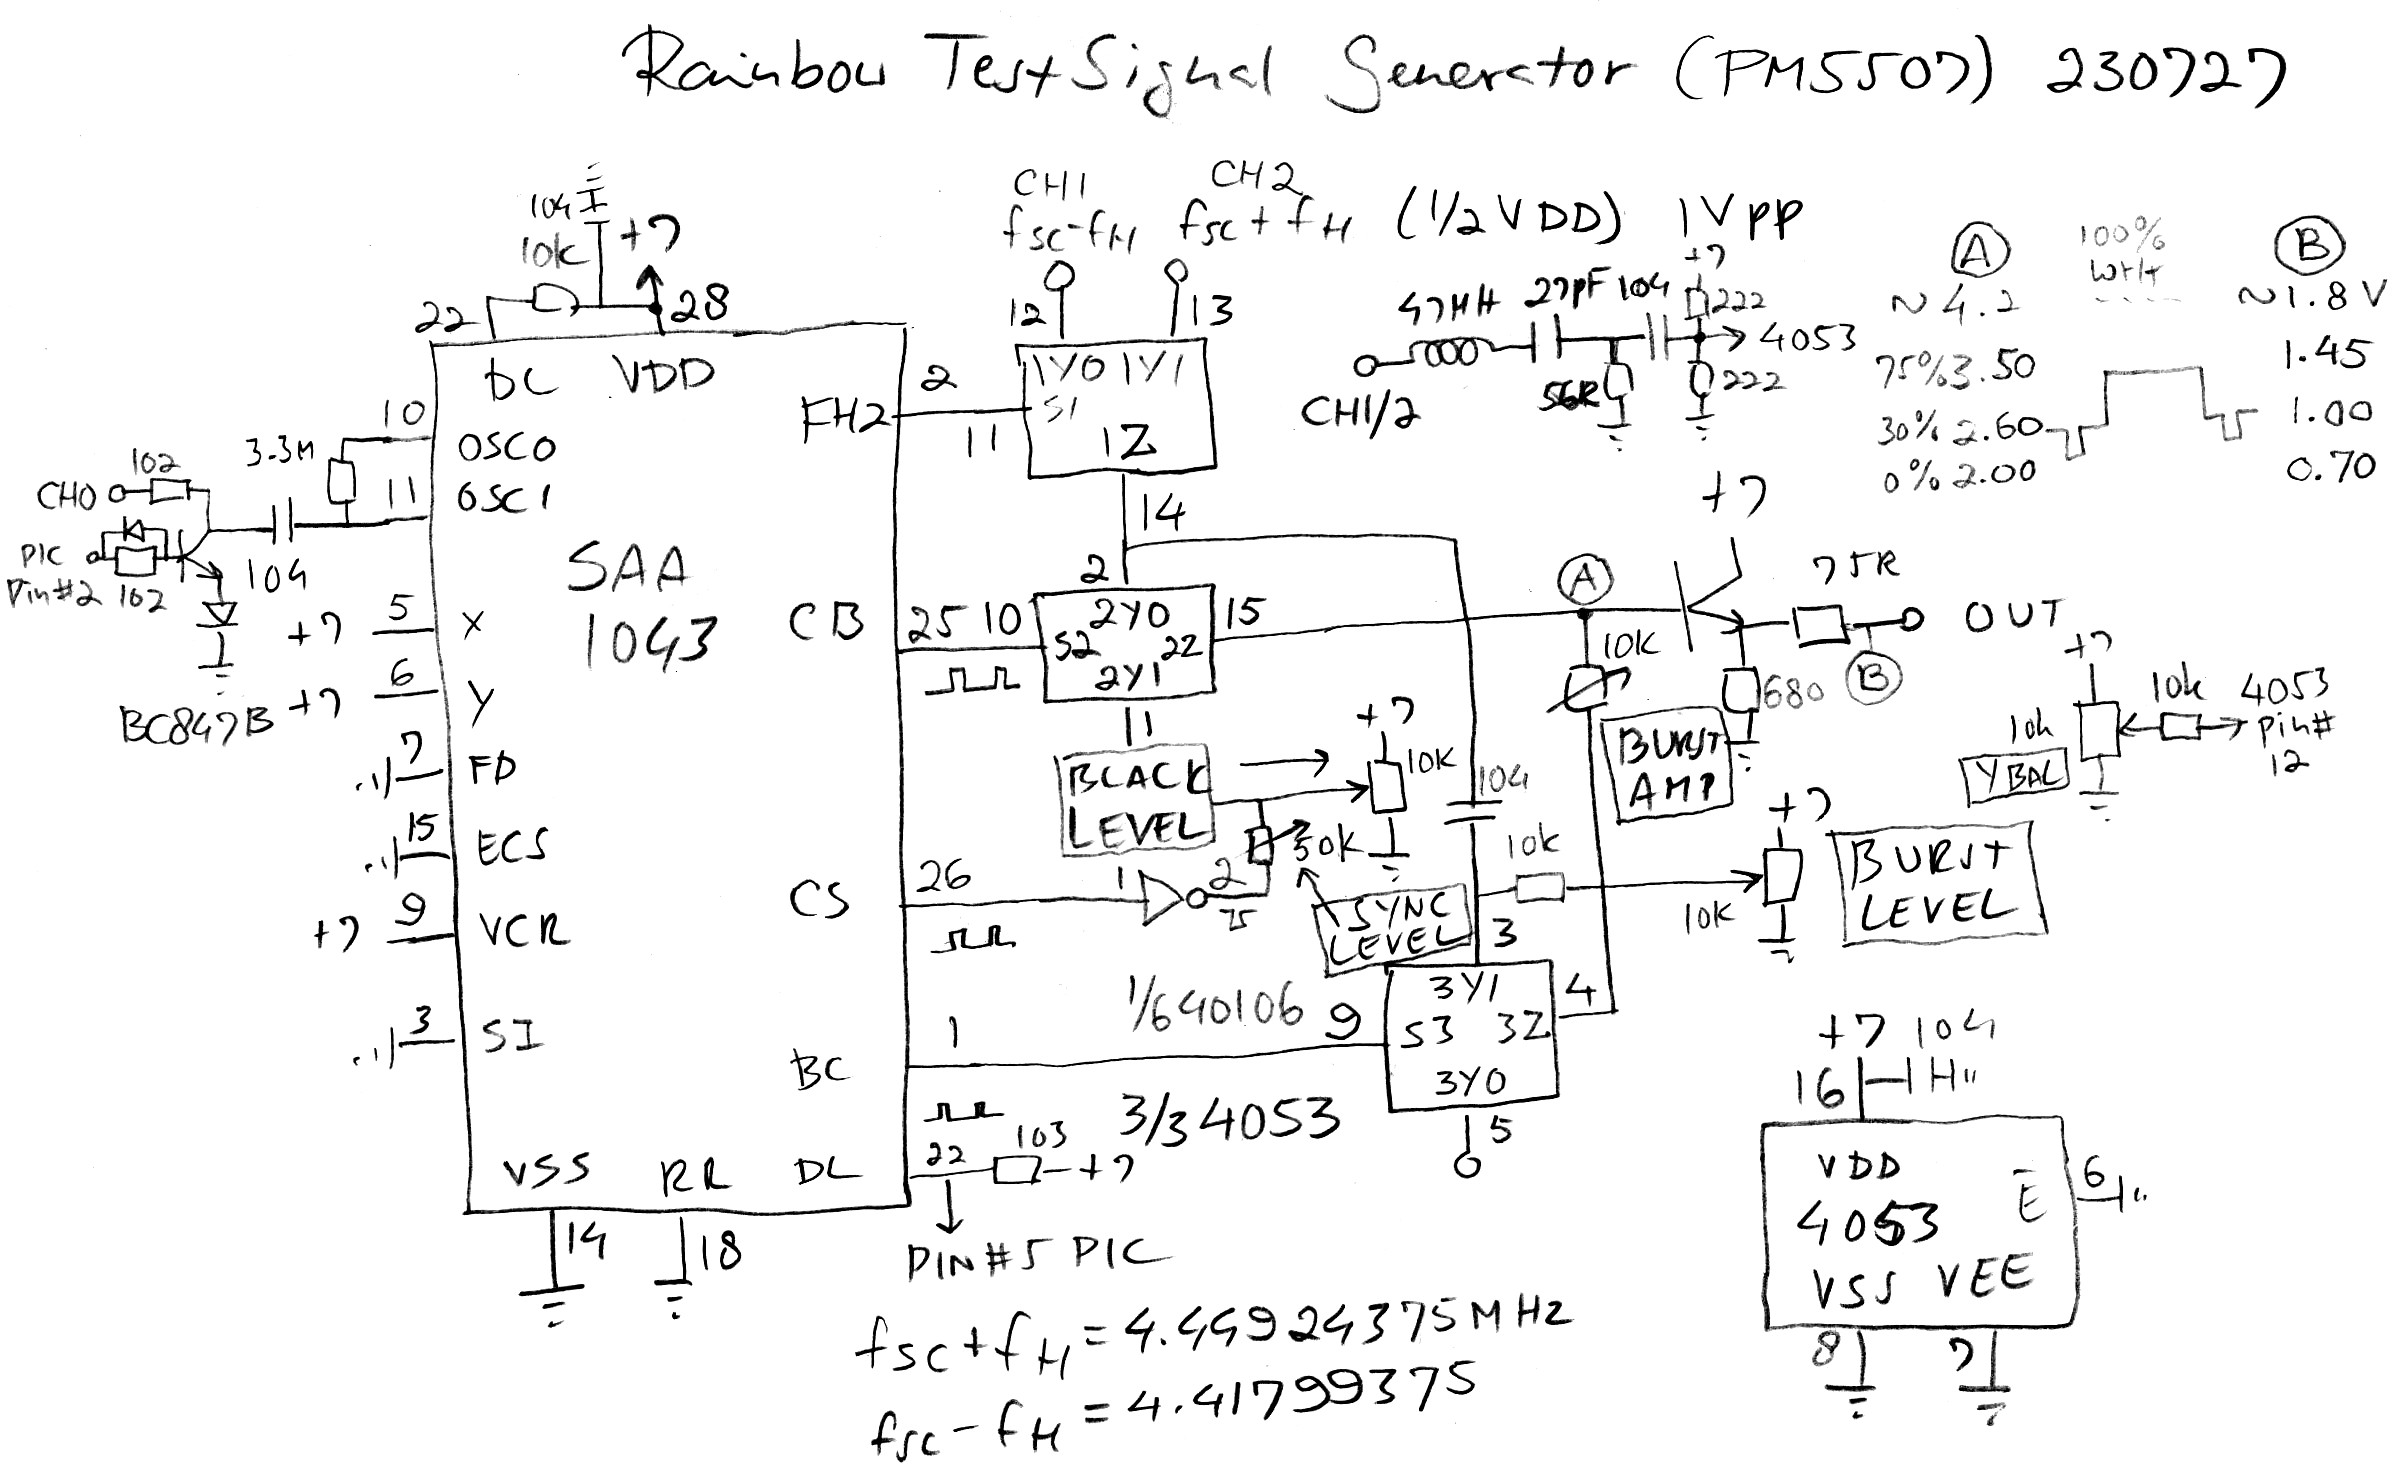 Rainbow Test Signal Generator (PM5507) 230727
CH1
fsc-fH
CH2
fsc+fH
(1/2 VDD) 1VPP
104
10k
+7
22
28
DC VDD
12
13
1Y0 1Y1
S1
1Z
FH2
2
11
14
47μH 27pF 104
+7
222
4053
56R
222
CH1/2
A
100%
~4.2
75% 3.50
30% 2.60
0% 2.00
B
~1.8V
1.45
1.00
0.70
10
OSCO
3.3M
11
OSCI
102
CHO
PIC
Pin#2
102
104
BC847B
SAA
1043
+7 5 X
+7 6 Y
7 FD
15 ECS
+7 9 VCR
3 SI
CB
25 10
2
2Y0
S2 2Z
2Y1
15
11
BLACK
LEVEL
+7
10K
50K
SYNC
LEVEL
CS
26
1
2
75
1/6 40106
A
+7
75R
OUT
B
680
10K
BURST
AMP
104
10k
10K
+7
BURST
LEVEL
+7
10k
Y BAL
10k
4053
pin#
12
BC
1
9
3
3Y1
S3 3Z
3Y0
4
5
3/3 4053
DL
22
103
+7
PIN#5 PIC
VSS RR
14
18
+7 104
16
VDD
4053
E̅
6
VSS VEE
8
7
fsc+fH=4.44924375MHz
fsc-fH=4.41799375